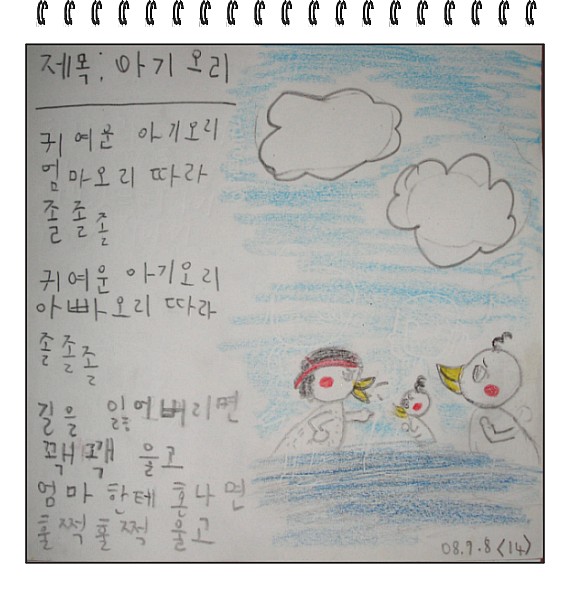 제목: 아기 오리
귀여운 아기오리
엄마오리 따라
졸졸졸
귀여운 아기오리
아빠오리 따라
졸졸졸
길을 잃어버리면
꽥꽥 울고
엄마한테 혼나면
훌쩍훌쩍 울고
08.9.8 <14>